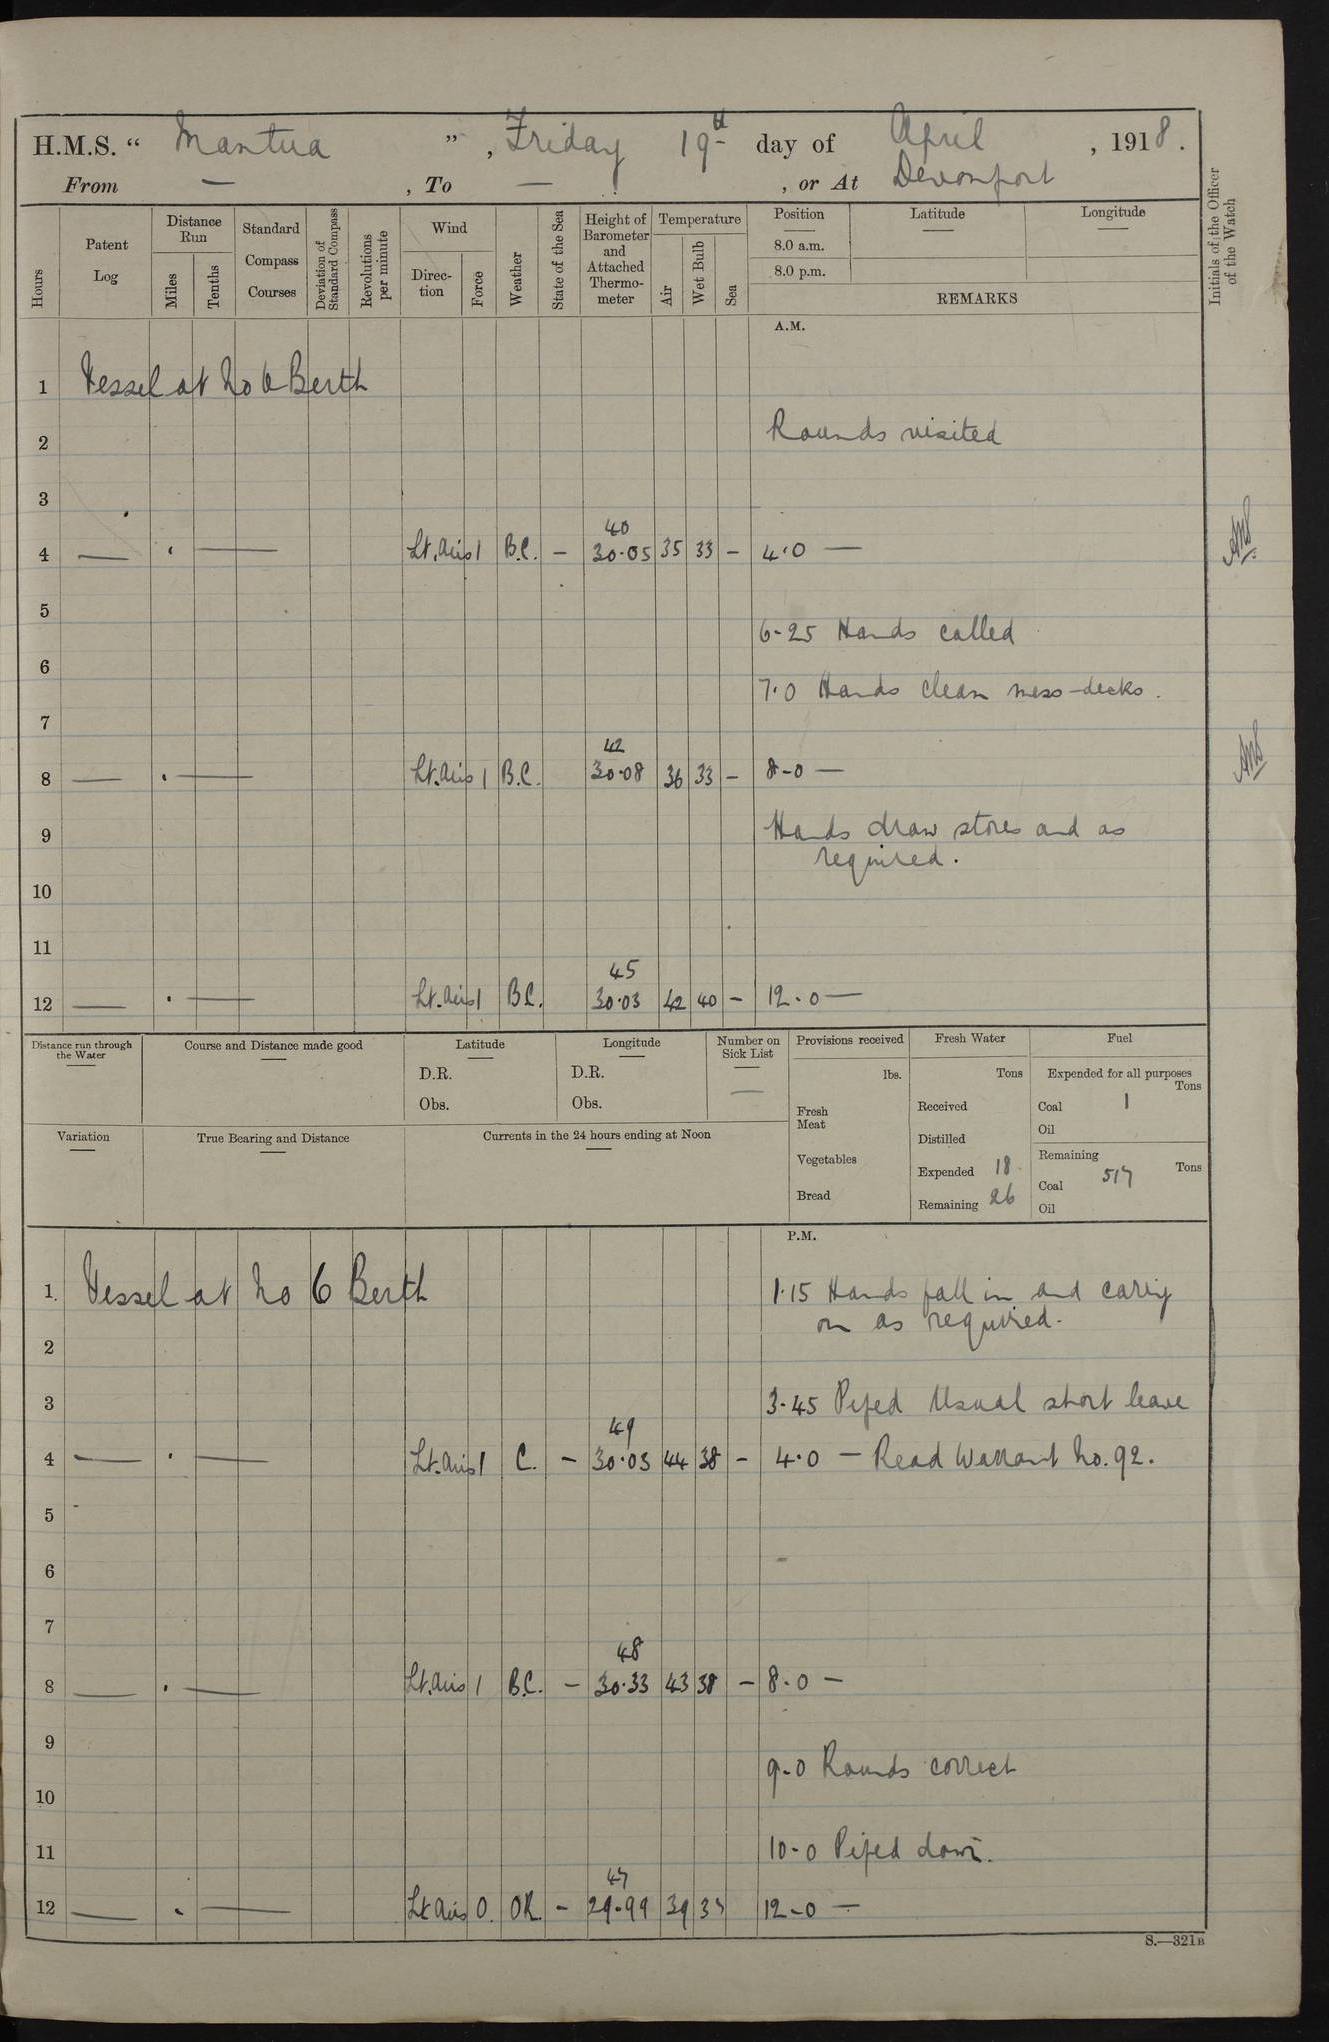 H.M.S. “ Mantua ” , Friday 19th day of April , 1918.
From — , To — , or At Devonport
Hours
Patent Log
Distance Run
Miles
Tenths
Standard Compass Courses
Deviation of Standard Compass
Revolutions per minute
Wind
Direction
Force
Weather
State of the Sea
Height of Barometer and Attached Thermometer
Temperature
Air
Wet Bulb
Sea
Position
Latitude
Longitude
8.0 a.m.
8.0 p.m.
REMARKS
Initials of the Officer of the Watch
A.M.
1 Vessel at No 6 Berth
2 Rounds visited
3
40
4 — · — Lt. Airs 1 B.C. – 30·05 35 33 – 4·0 —
5
6-25 Hands called
6
7·0 Hands clean mess-decks.
7
42
8 — · — Lt. Airs 1 B.C. 30·08 36 33 – 8-0 —
9 Hands draw stores and as
required.
10
11
45
12 — · — Lt. Airs 1 B.C. 30·03 42 40 – 12-0 —
Distance run through the Water
Course and Distance made good
Latitude
D.R.
Obs.
Longitude
D.R.
Obs.
Number on Sick List
—
Provisions received
lbs.
Fresh Meat
Vegetables
Bread
Fresh Water
Tons
Received
Distilled
Expended 18
Remaining 26
Fuel
Expended for all purposes
Tons
Coal 1
Oil
Remaining
Tons
Coal 517
Oil
Variation
True Bearing and Distance
Currents in the 24 hours ending at Noon
P.M.
1. Vessel at No 6 Berth 1·15 Hands fall in and carry
on as required.
2
3 3-45 Piped Usual short leave
49
4 — · — Lt. Airs 1 C. – 30·03 44 38 – 4·0 — Read Warrant No. 92.
5
6
7
48
8 — · — Lt. Airs 1 B.C. – 30·33 43 38 – 8·0 –
9
9-0 Rounds correct
10
11 10-0 Piped down.
47
12 — · — Lt Airs 0. – 29·99 39 12-0 —
S.—321B